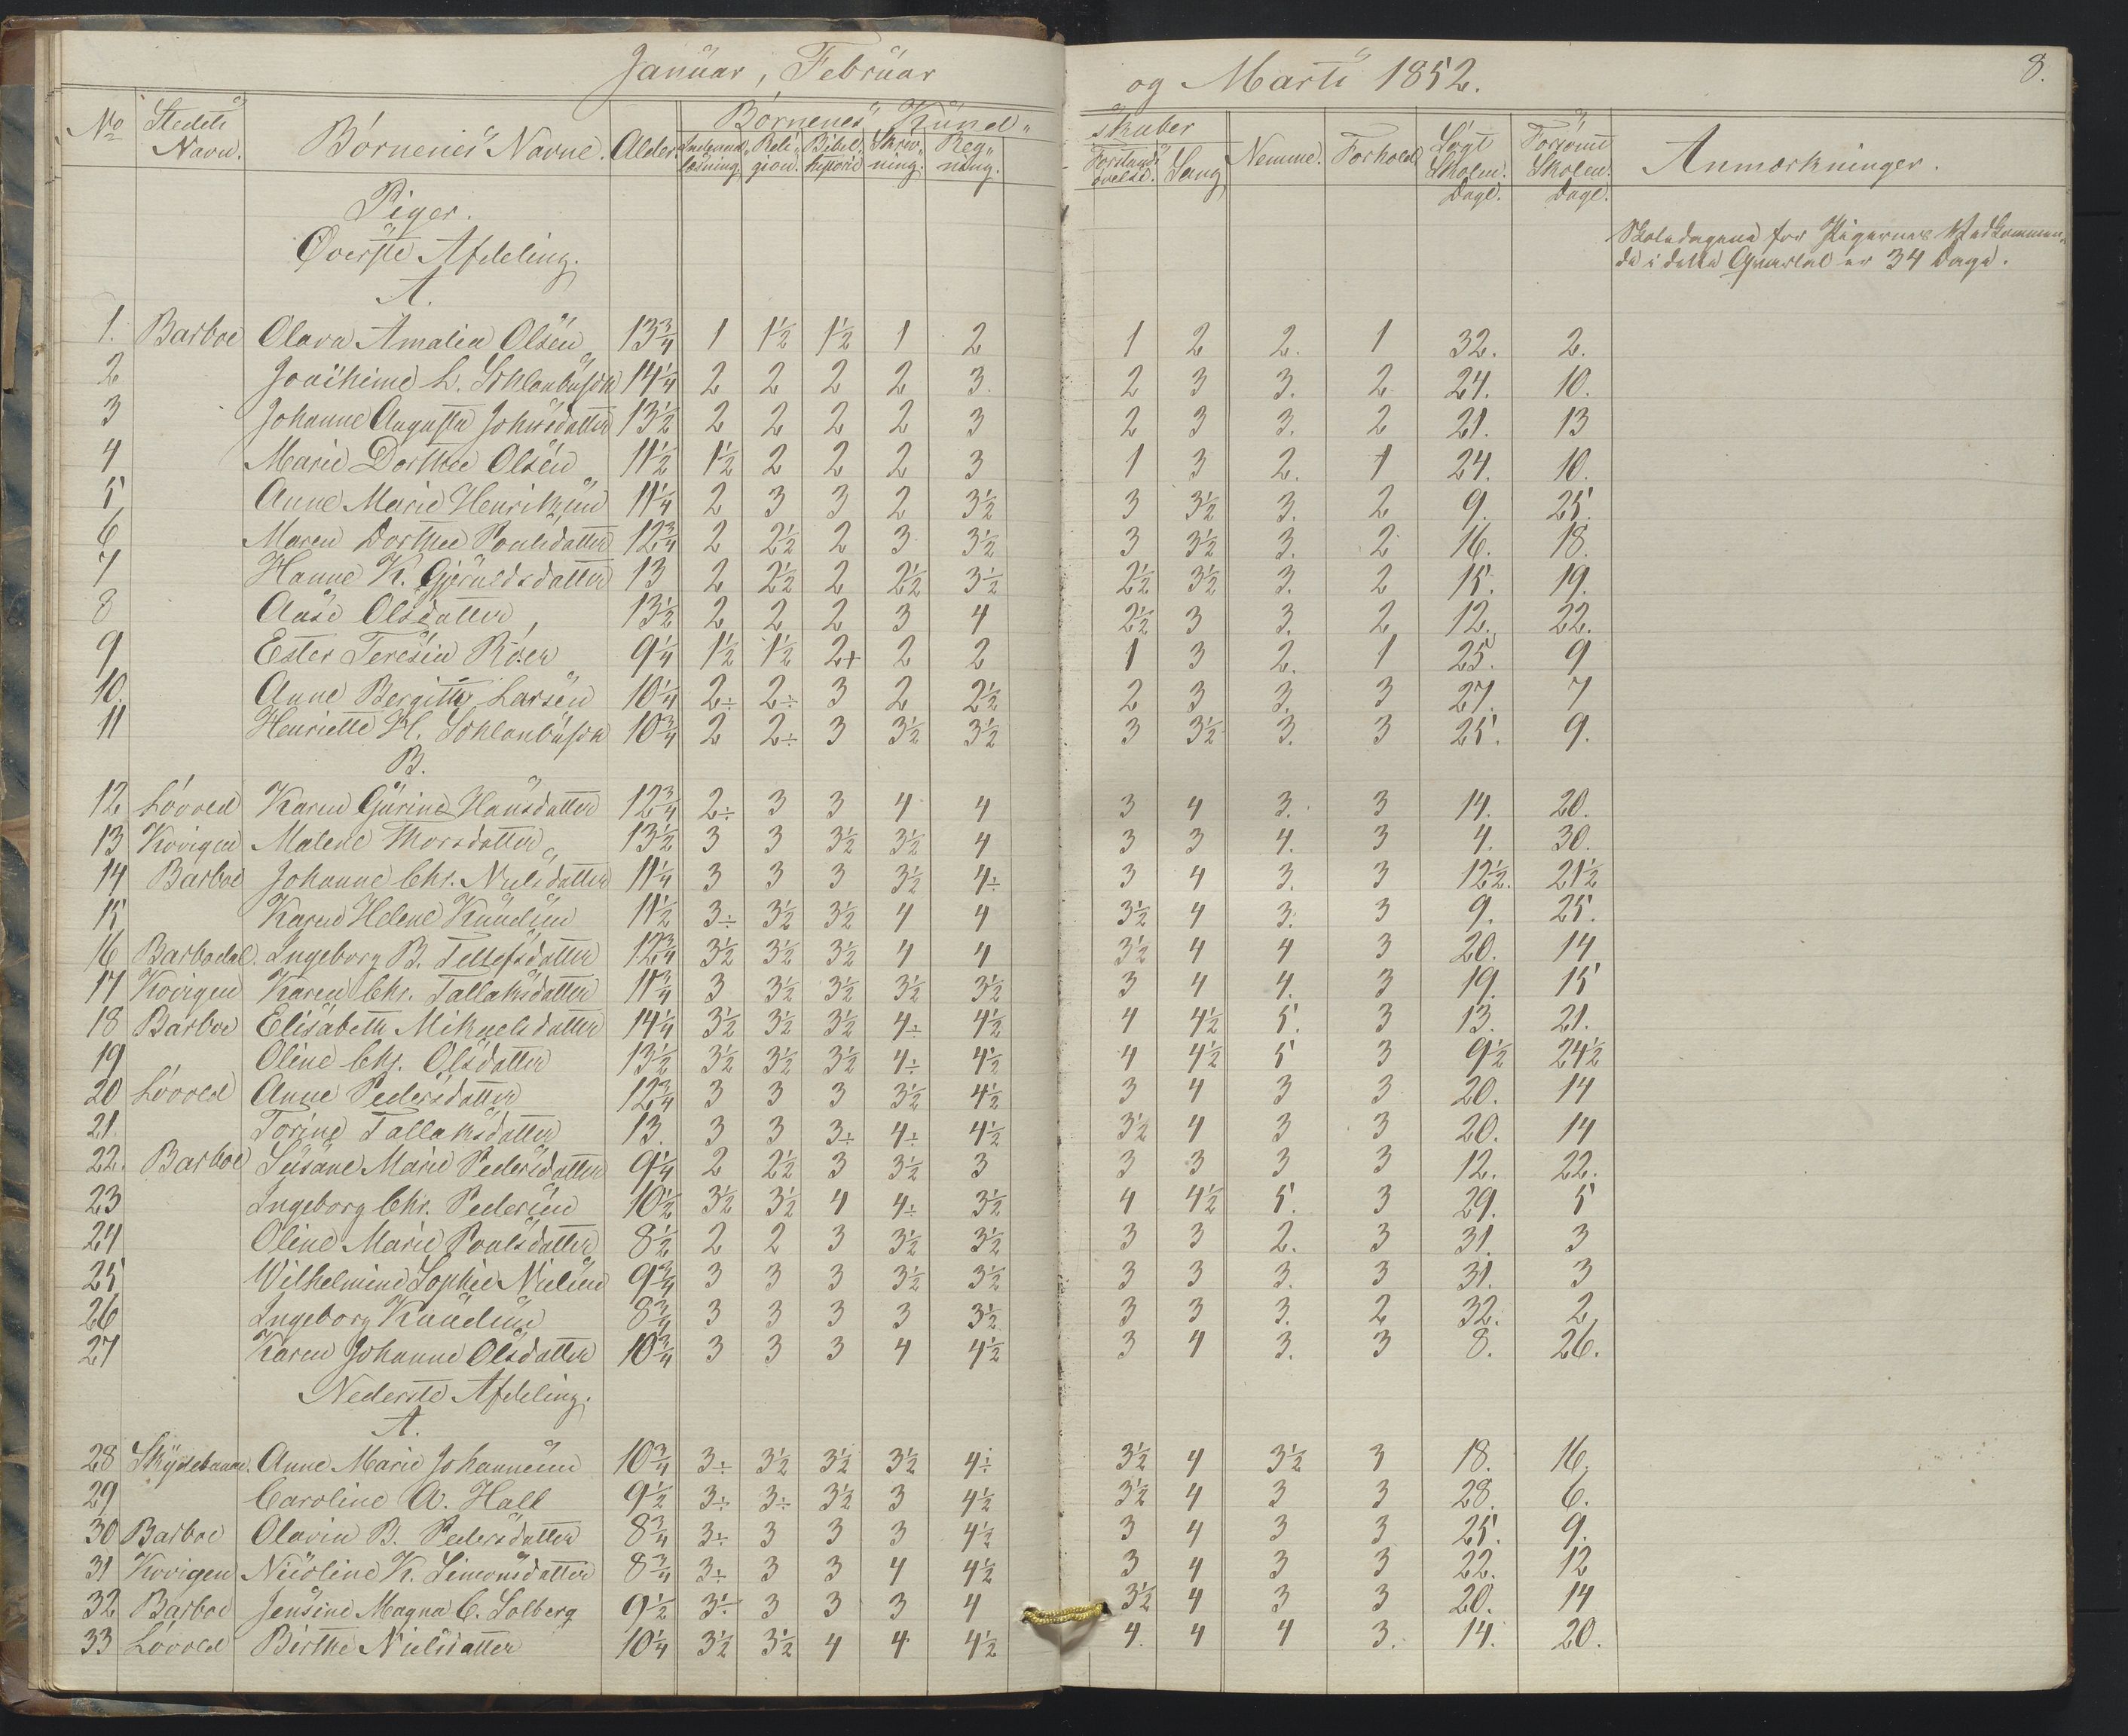 Januar, Februar og Marts 1852. 8.
No Stedets Navn. Børnenes Navne. Alder. Børnenes Kund„ skaber Nemme. Forhold Søgt Skolen. Dage. Forsømt Skolen. Dage. Anmærkninger.
Indenad„ læsning. Reli„ gion. Bibel. historie Skriv„ ning. Reg„ ning. Forstands øvelse. Sang
Piger.
Øverste Afdeling.
Skoledagene for Pigernes Vedkommen„
de i dette Qvartal er 34 Dage.
A.
1. Barboe Olava Amalia Olsen 13¾ 1 1½ 1½ 1 2 1 2 2. 1 32. 2.
2 Joachime L. Schlanbusch 14¼ 2 2 2 2 3. 2 3 3. 2 24. 10.
3 Johanne Augusta Johnsdatter 13½ 2 2 2 2 3 2 3 3. 2 21. 13
4 Marie Dorthee Olsen 11½ 1½ 2 2 2 3 1 3 2. 1 24. 10.
5 Anne Marie Henriksen 11¼ 2 3 3 2 3½ 3 3½ 3. 2 9. 25.
6 Maren Dorthee Poulsdatter 12¾ 2 2½ 2 3 3½ 3 3½ 3. 2 16. 18.
7 Hanne K. Gjeruldsdatter 13 2 2½ 2 2½ 3½ 2½ 3½ 3. 2 15. 19.
8 Aase Olsdatter 13½ 2 2 2 3 4 2½ 3 3. 2 12. 22.
9 Ester Teresia Røer 9¼ 1½ 1½ 2+ 2 2 1 3 2. 1 25. 9
10. Anne Bergitte Larsen 10¼ 2÷ 2÷ 3 2 2½ 2 3 3. 3 27. 7
11 Henriette H. Schlanbusch 10¾ 2 2÷ 3 3½ 3½ 3 3½ 3. 3 25. 9.
B.
12 Løvold Karen Gurine Hansdatter 12¾ 2÷ 3 3 4 4 3 4 3. 3 14. 20.
13 Kvigen Malene Thorsdatter 13½ 3 3 3½ 3½ 4 3 3 4. 3 4. 30.
14 Barboe Johanne Chr. Nielsdatter 11¼ 3 3 3 3½ 4÷ 3 4 3. 3 12½. 21½
15 Karen Helene Knudsen 11½ 3÷ 3½ 3½ 4 4 3½ 4 3. 3 9. 25.
16 Barbodal. Ingeborg B. Tellefsdatter 12¾ 3½ 3½ 3½ 4 4 3½ 4 4 3 20. 14
17 Kvigen Karen Chr. Tallaksdatter 11¾ 3 3½ 3½ 3½ 3½ 3 4 4. 3 19. 15
18 Barboe Elisabeth Mikaelsdatter 14¼ 3½ 3½ 3½ 4÷ 4½ 4 4½ 5. 3 13. 21.
19 Oline Chr. Olsdatter 13½ 3½ 3½ 3½ 4÷ 4½ 4 4½ 5 3 9½ 24½
20 Løvold Anne Pedersdatter 12¾ 3 3 3 3½ 4½ 3 4 3 3 20. 14
21. Torine Tallaksdatter 13. 3 3 3÷ 4÷ 4½ 3½ 4 3 3 20. 14
22. Barboe Susane Marie Pedersdatter 9¼ 2 2½ 3 3½ 3 3 3 3 3 12. 22.
23 Ingeborg Chr. Pedersen 10½ 3½ 3½ 4 4÷ 3½ 4 4½ 5. 3 29. 5
24 Oline Marie Poulsdatter 8½ 2 2 3 3½ 3½ 3 3 2. 3 31. 3
25 Wilhelmine Sophie Nielsen 9¾ 3 3 3 3½ 3½ 3 3 3. 3 31. 3
26 Ingeborg Knudsen 8¾ 3 3 3 3 3½ 3 3 3. 2 32. 2
27 Karen Johanne Olsdatter 10¾ 3 3 3 4 4½ 3 4 3. 3 8. 26.
Nederste Afdeling.
A.
28 Skydebanen. Anne Marie Johannesen 10¾ 3÷ 3½ 3½ 3½ 4÷ 3½ 4 3½ 3 18. 16.
29 Caroline A. Hall 9½ 3÷ 3÷ 3½ 3 4½ 3½ 4 3 3 28. 6.
30 Barboe Olavia B. Pedersdatter 8¾ 3÷ 3 3 3 4½ 3 4 3 3 25. 9.
31 Kvigen Nicoline K. Simonsdatter 8¾ 3÷ 3 3 4 4½ 3 4 3 3 22. 12
32 Barboe Jensine Magna C. Solberg 9½ 3÷ 3 3 3 4 3½ 4 3 3 20. 14
33 Løvold Birthe Nielsdatter 10¼ 3½ 3½ 4 4 4½ 4. 4 4 3. 14. 20.